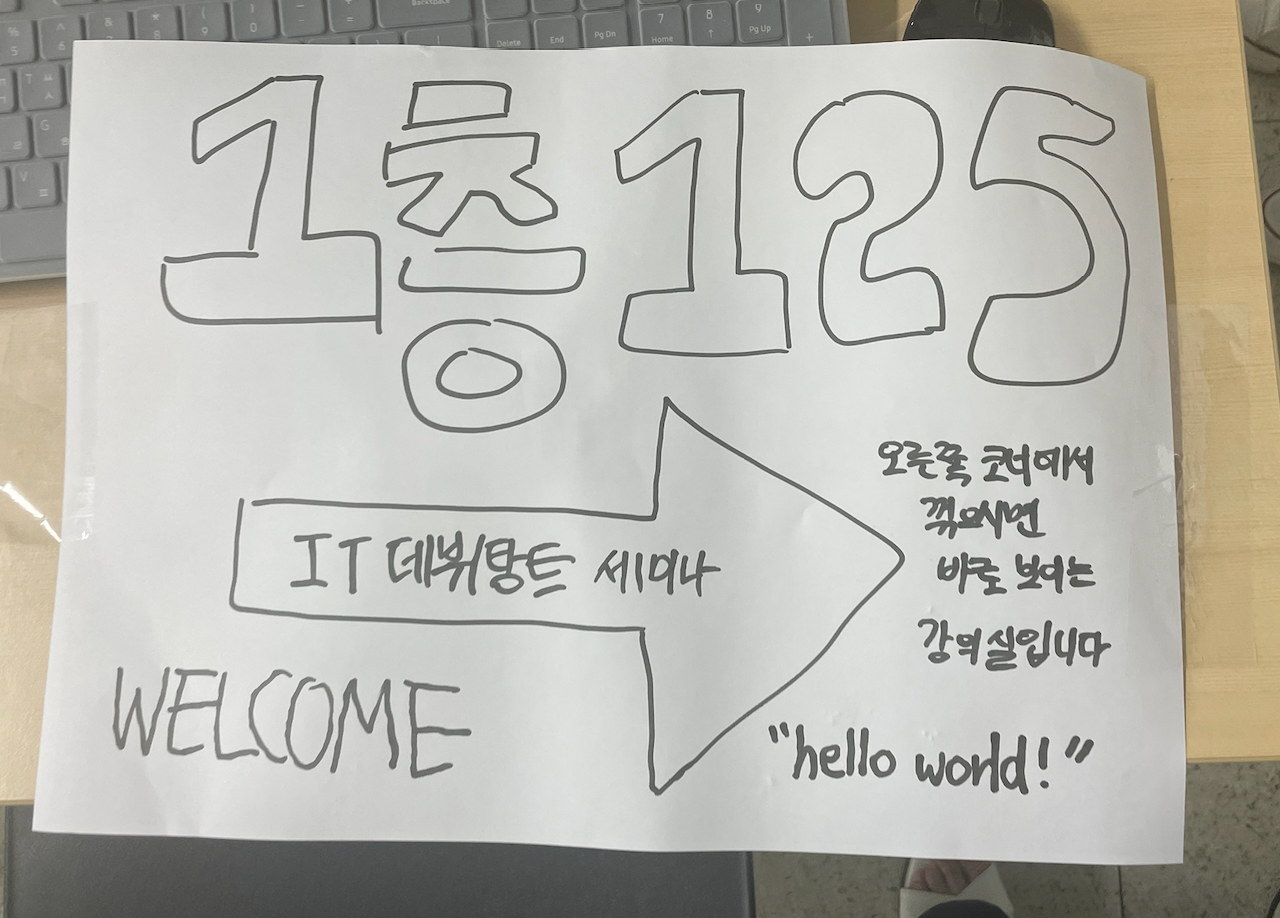 BackSpace
Delete End Pg Dn Home
7 8 9 Pg Up
1층 125
IT 데뷔탕트 세미나
오른쪽 코너에서
꺾으시면
바로 보이는
강의실입니다
WELCOME
"hello world!"